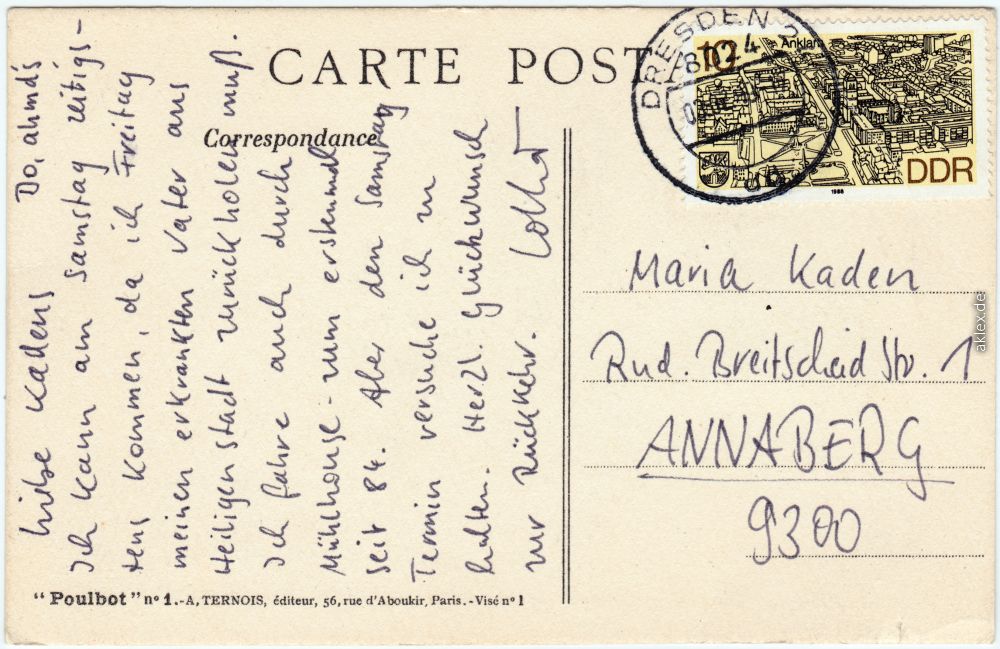 CARTE POST
Correspondance
Do, ahmds
Liebe Kadens
Ich kann am Samstag zeitigs-
tens kommen, da ich Freitag
meinen erkrankten Vater aus
Heiligenstadt zurückholen muß.
Ich fahre auch durch
Mühlhouse - zum erstenmal
seit 84. Aber den Samstag
Termin versuche ich zu
halten. Herzl. Glückwunsch
zur Rückkehr.
"Poulbot" nº 1.-A, TERNOIS, éditeur, 56, rue d'Aboukir, Paris.-Visé nº 1
DRESDEN 2
8024
10
Anklam
DDR
1988
Maria Kaden
Rud. Breitscheid Str. 1
ANNABERG
9300
aklex.de